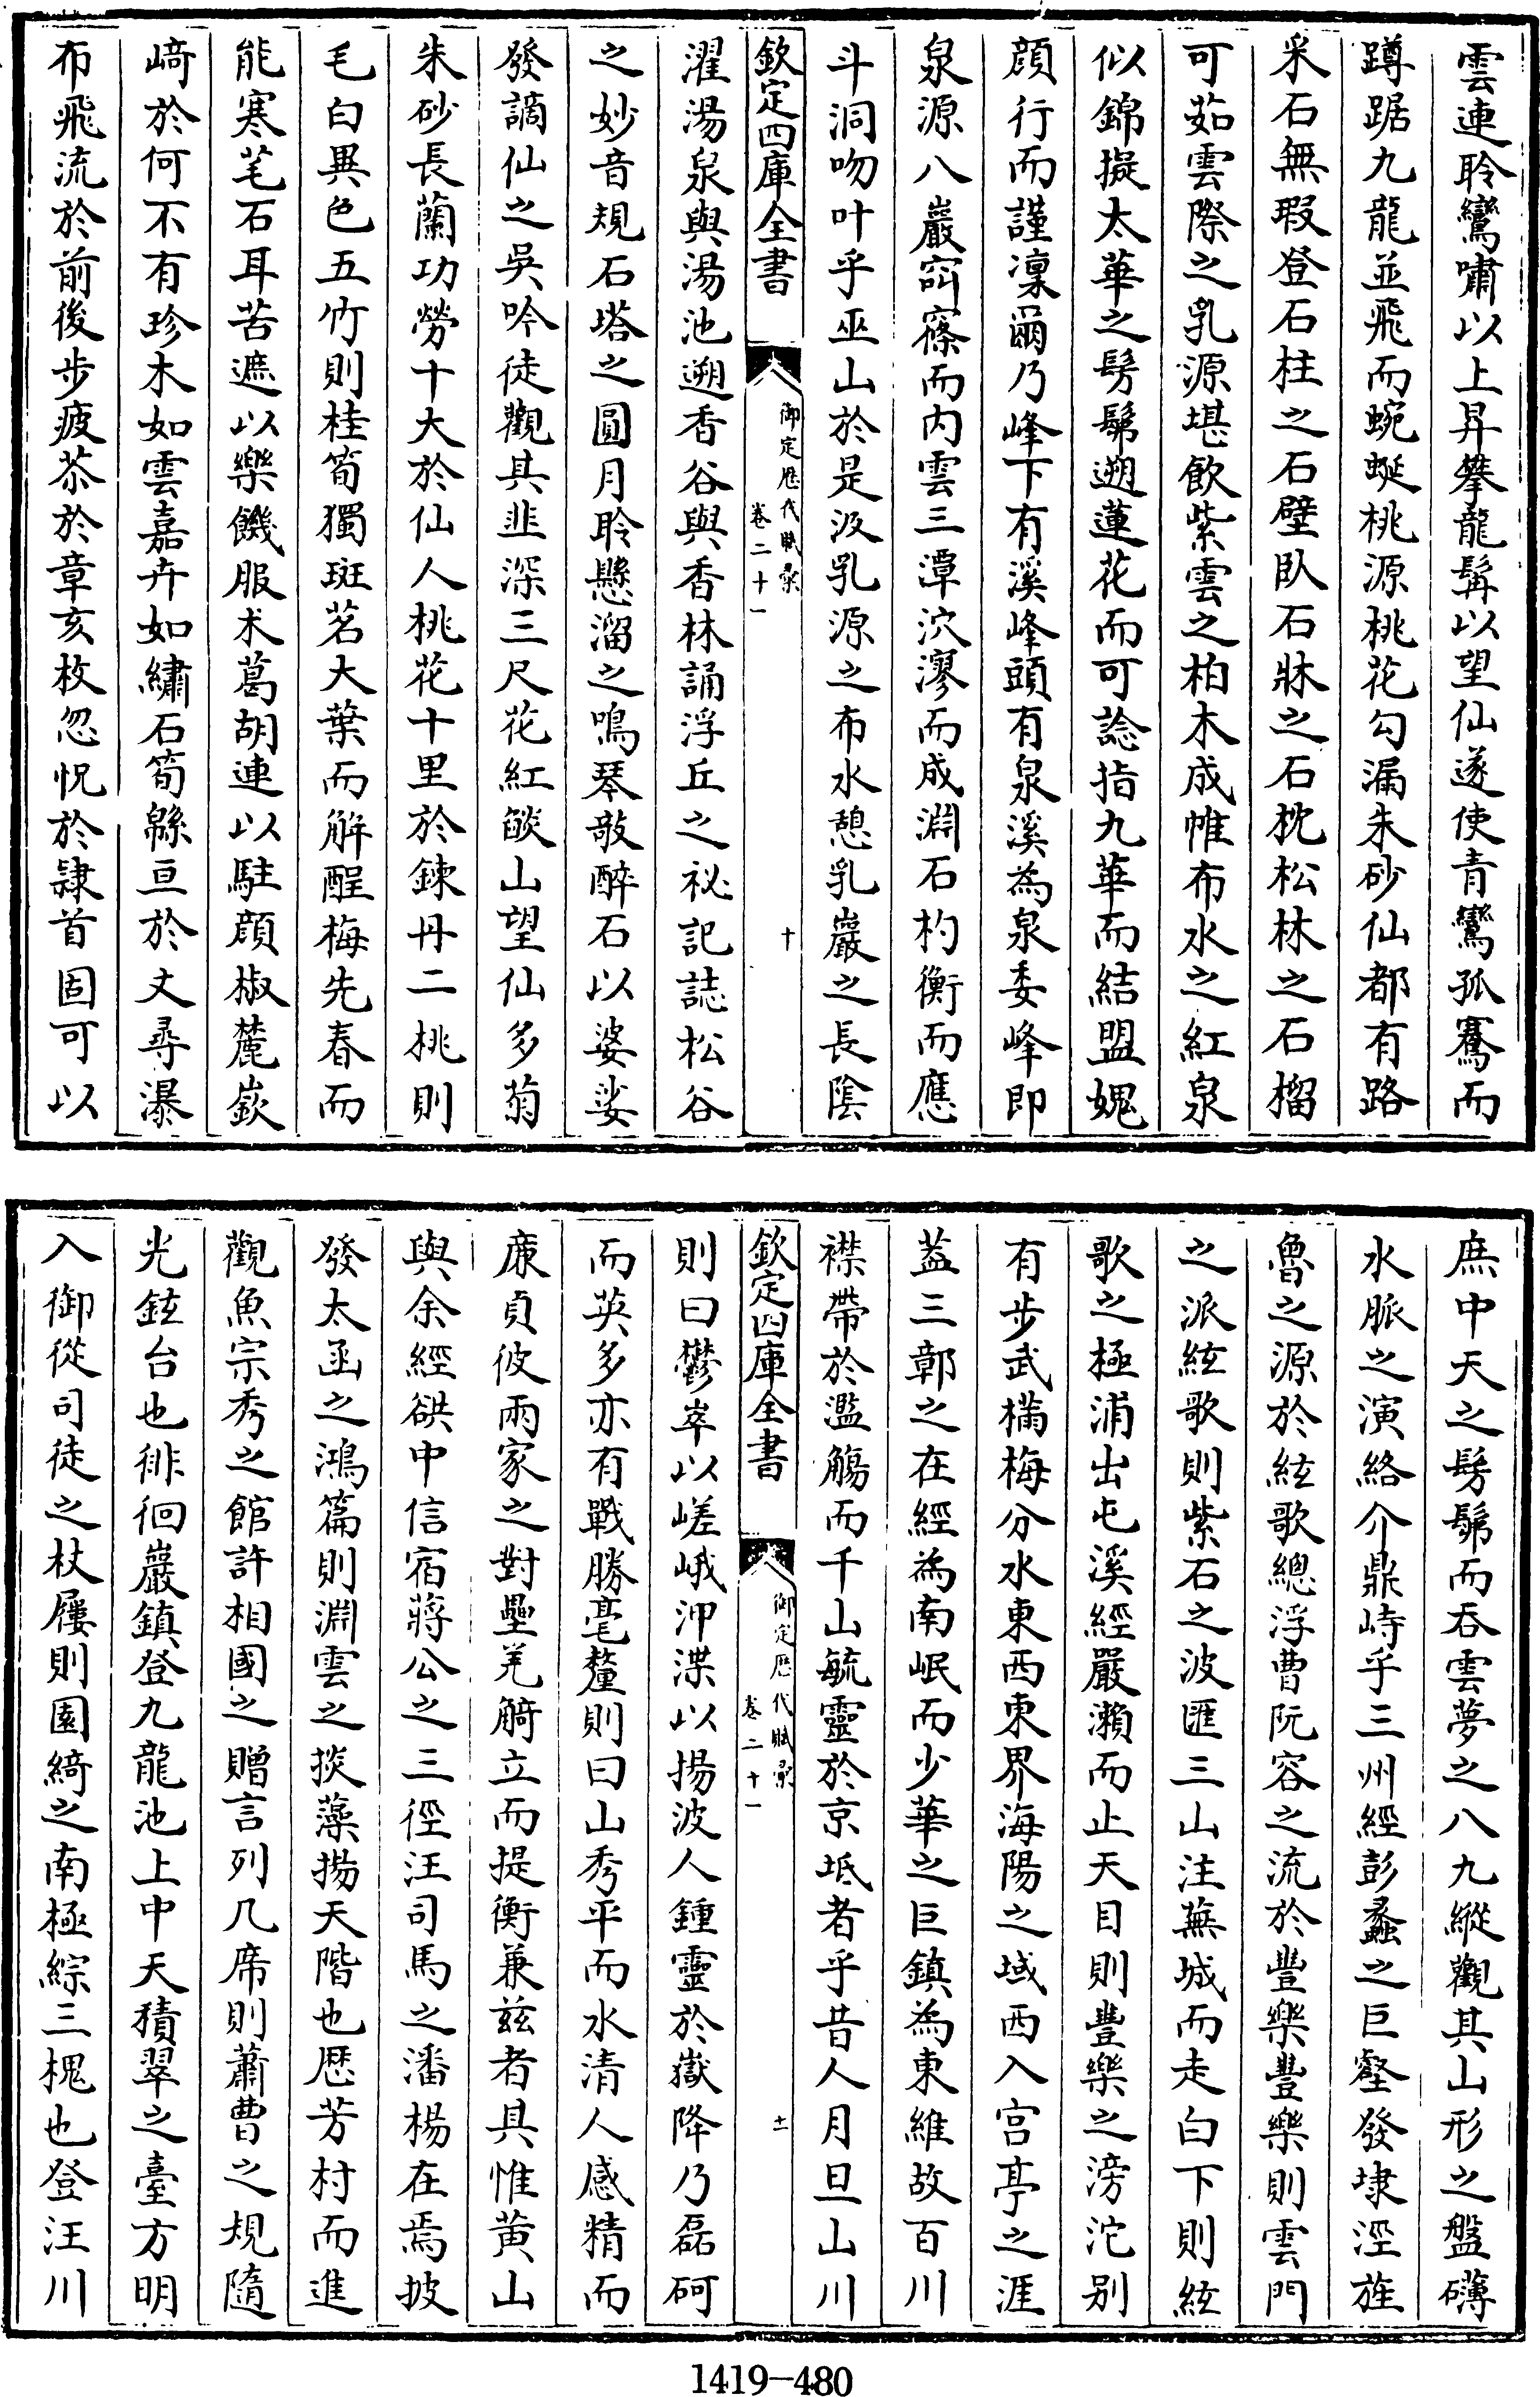 雲連聆鸞嘯以上昇攀龍髯以望仙遂使青鸞孤騫而
蹲踞九龍並飛而蜿蜒桃源桃花勾漏朱砂仙都有路
采石無瑕登石柱之石壁臥石牀之石枕松林之石榴
可茹雲際之乳源堪飲紫雲之柏木成帷布水之紅泉
似錦擬太華之髣髴遡蓮花而可諗指九華而結盟媿
顔行而謹凜爾乃峰下有溪峰頭有泉溪為泉委峰即
泉源八巖窞窱而内雲三潭泬漻而成淵石杓衡而應
斗洞吻叶乎巫山於是汲乳源之布水憩乳巖之長隂
欽定四庫全書
御定歴代賦彚
卷二十一
十
濯湯泉與湯池遡香谷與香林誦浮丘之祕記誌松谷
之妙音規石塔之圓月聆懸溜之鳴琴敲醉石以婆娑
發謫仙之吳吟徒觀其韭深三尺花紅燄山望仙多菊
朱砂長蘭功勞十大於仙人桃花十里於鍊丹二桃則
毛白異色五竹則桂筍獨斑茗大葉而解酲梅先春而
能寒芼石耳苦遮以樂饑服术葛胡連以駐顔椒麓嶔
﨑於何不有珍木如雲嘉卉如繡石筍緜亘於丈尋瀑
布飛流於前後步疲苶於章亥枚忽怳於隸首固可以
庶中天之髣髴而吞雲夢之八九縱觀其山形之盤礴
水脈之演絡介鼎峙乎三州經彭蠡之巨壑發埭涇旌
魯之源於絃歌總浮曹阮容之流於豐樂豐樂則雲門
之派絃歌則紫石之波匯三山注蕪城而走白下則絃
歌之極浦出屯溪經嚴瀨而止天目則豐樂之滂沱别
有步武㰚梅分水東西東界海陽之域西入宫亭之涯
葢三鄣之在經為南岷而少華之巨鎮為東維故百川
襟帶於濫觴而千山毓靈於京坻者乎昔人月旦山川
欽定四庫全書
御定歴代賦彚
卷二十一
十一
則曰鬱崒以嵯峨泙渫以揚波人鍾靈於嶽降乃磊砢
而英多亦有戰勝毫釐則曰山秀平而水清人感精而
廉貞彼兩家之對壘羌觭立而提衡兼兹者具惟黄山
與余經谼中信宿蔣公之三徑汪司馬之潘楊在焉披
發太函之鴻篇則淵雲之掞藻揚天階也歴芳村而進
觀魚宗秀之館許相國之贈言列几席則蕭曹之規隨
光鉉台也徘徊巖鎮登九龍池上中天積翠之臺方明
入御從司徒之杖屨則園綺之南極綜三槐也登汪川
1419-480